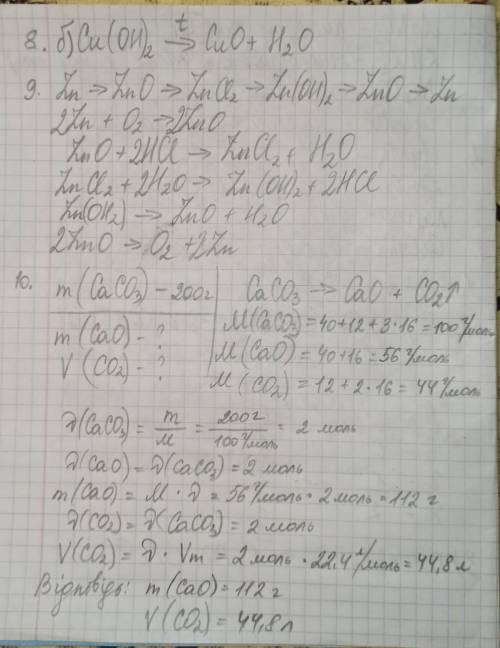 8. б) Cu(OH)₂ →t CuO + H₂O
9. Zn → ZnO → ZnCl₂ → Zn(OH)₂ → ZnO → Zn
2Zn + O₂ → 2ZnO
ZnO + 2HCl → ZnCl₂ + H₂O
ZnCl₂ + 2H₂O → Zn(OH)₂ + 2HCl
Zn(OH₂) → ZnO + H₂O
2ZnO → O₂ + 2Zn
10. m(CaCO₃) – 200г
m(CaO) – ?
V(CO₂) – ?
CaCO₃ → CaO + CO₂↑
M(CaCO₃) = 40+12+3·16 = 100 г/моль
M(CaO) = 40+16 = 56 г/моль
M(CO₂) = 12+2·16 = 44 г/моль
ν(CaCO₃) = m/M = 200г/100г/моль = 2 моль
ν(CaO) = ν(CaCO₃) = 2 моль
m(CaO) = M · ν = 56 г/моль · 2 моль = 112 г
ν(CO₂) = ν(CaCO₃) = 2 моль
V(CO₂) = ν · Vm = 2 моль · 22,4 л/моль = 44,8 л
Відповідь: m(CaO) = 112 г
V(CO₂) = 44,8 л